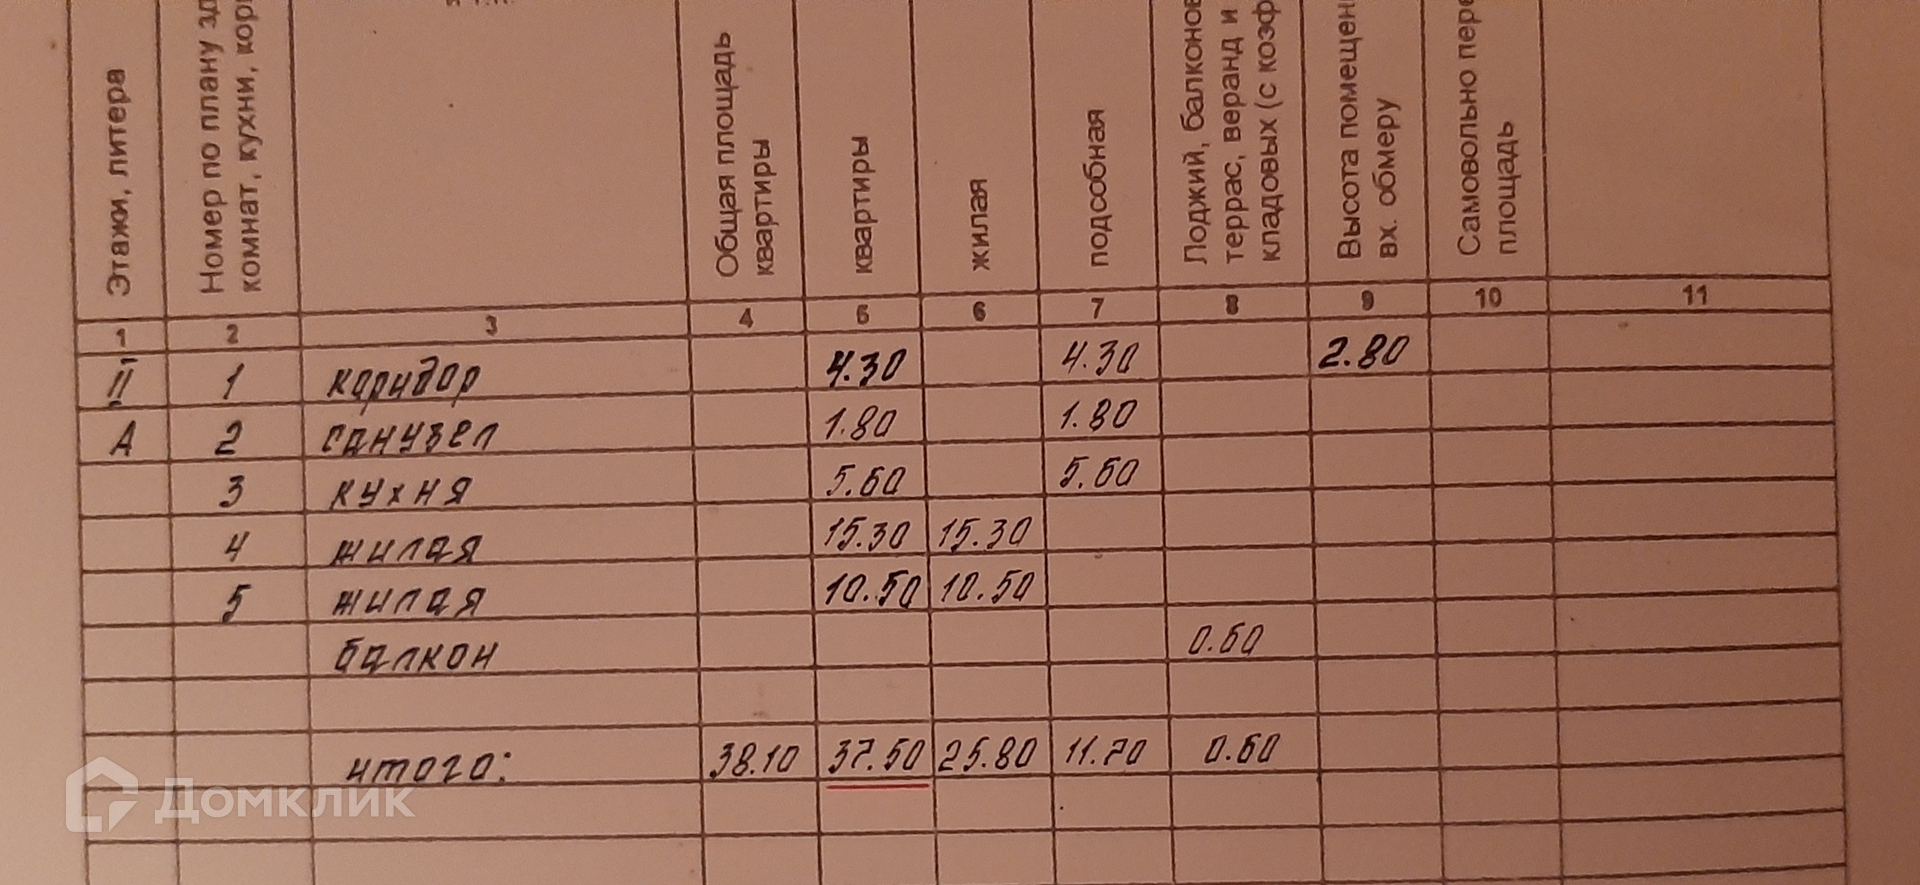 Этажи, литера
Номер по плану
комнат, кухни,
Общая площадь
квартиры
квартиры
жилая
подсобная
Лоджий, балконов
террас, веранд и
кладовых (с
Высота
вх. обмеру
Самовольно
площадь
1 2 3 4 5 6 7 8 9 10 11
II 1 коридор 4.30 4.30 2.80
А 2 санузел 1.80 1.80
3 кухня 5.60 5.60
4 жилая 15.30 15.30
5 жилая 10.50 10.50
балкон 0.60
итого: 38.10 37.50 25.80 11.70 0.60
Домклик